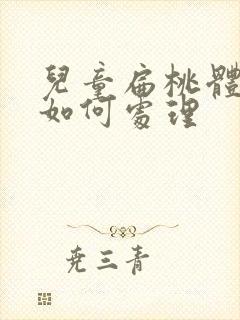 兒童扁桃體
如何處理
尭三青